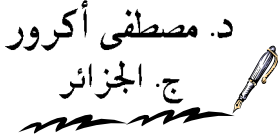 د. مصطفى أكرور
ج. الجزائر